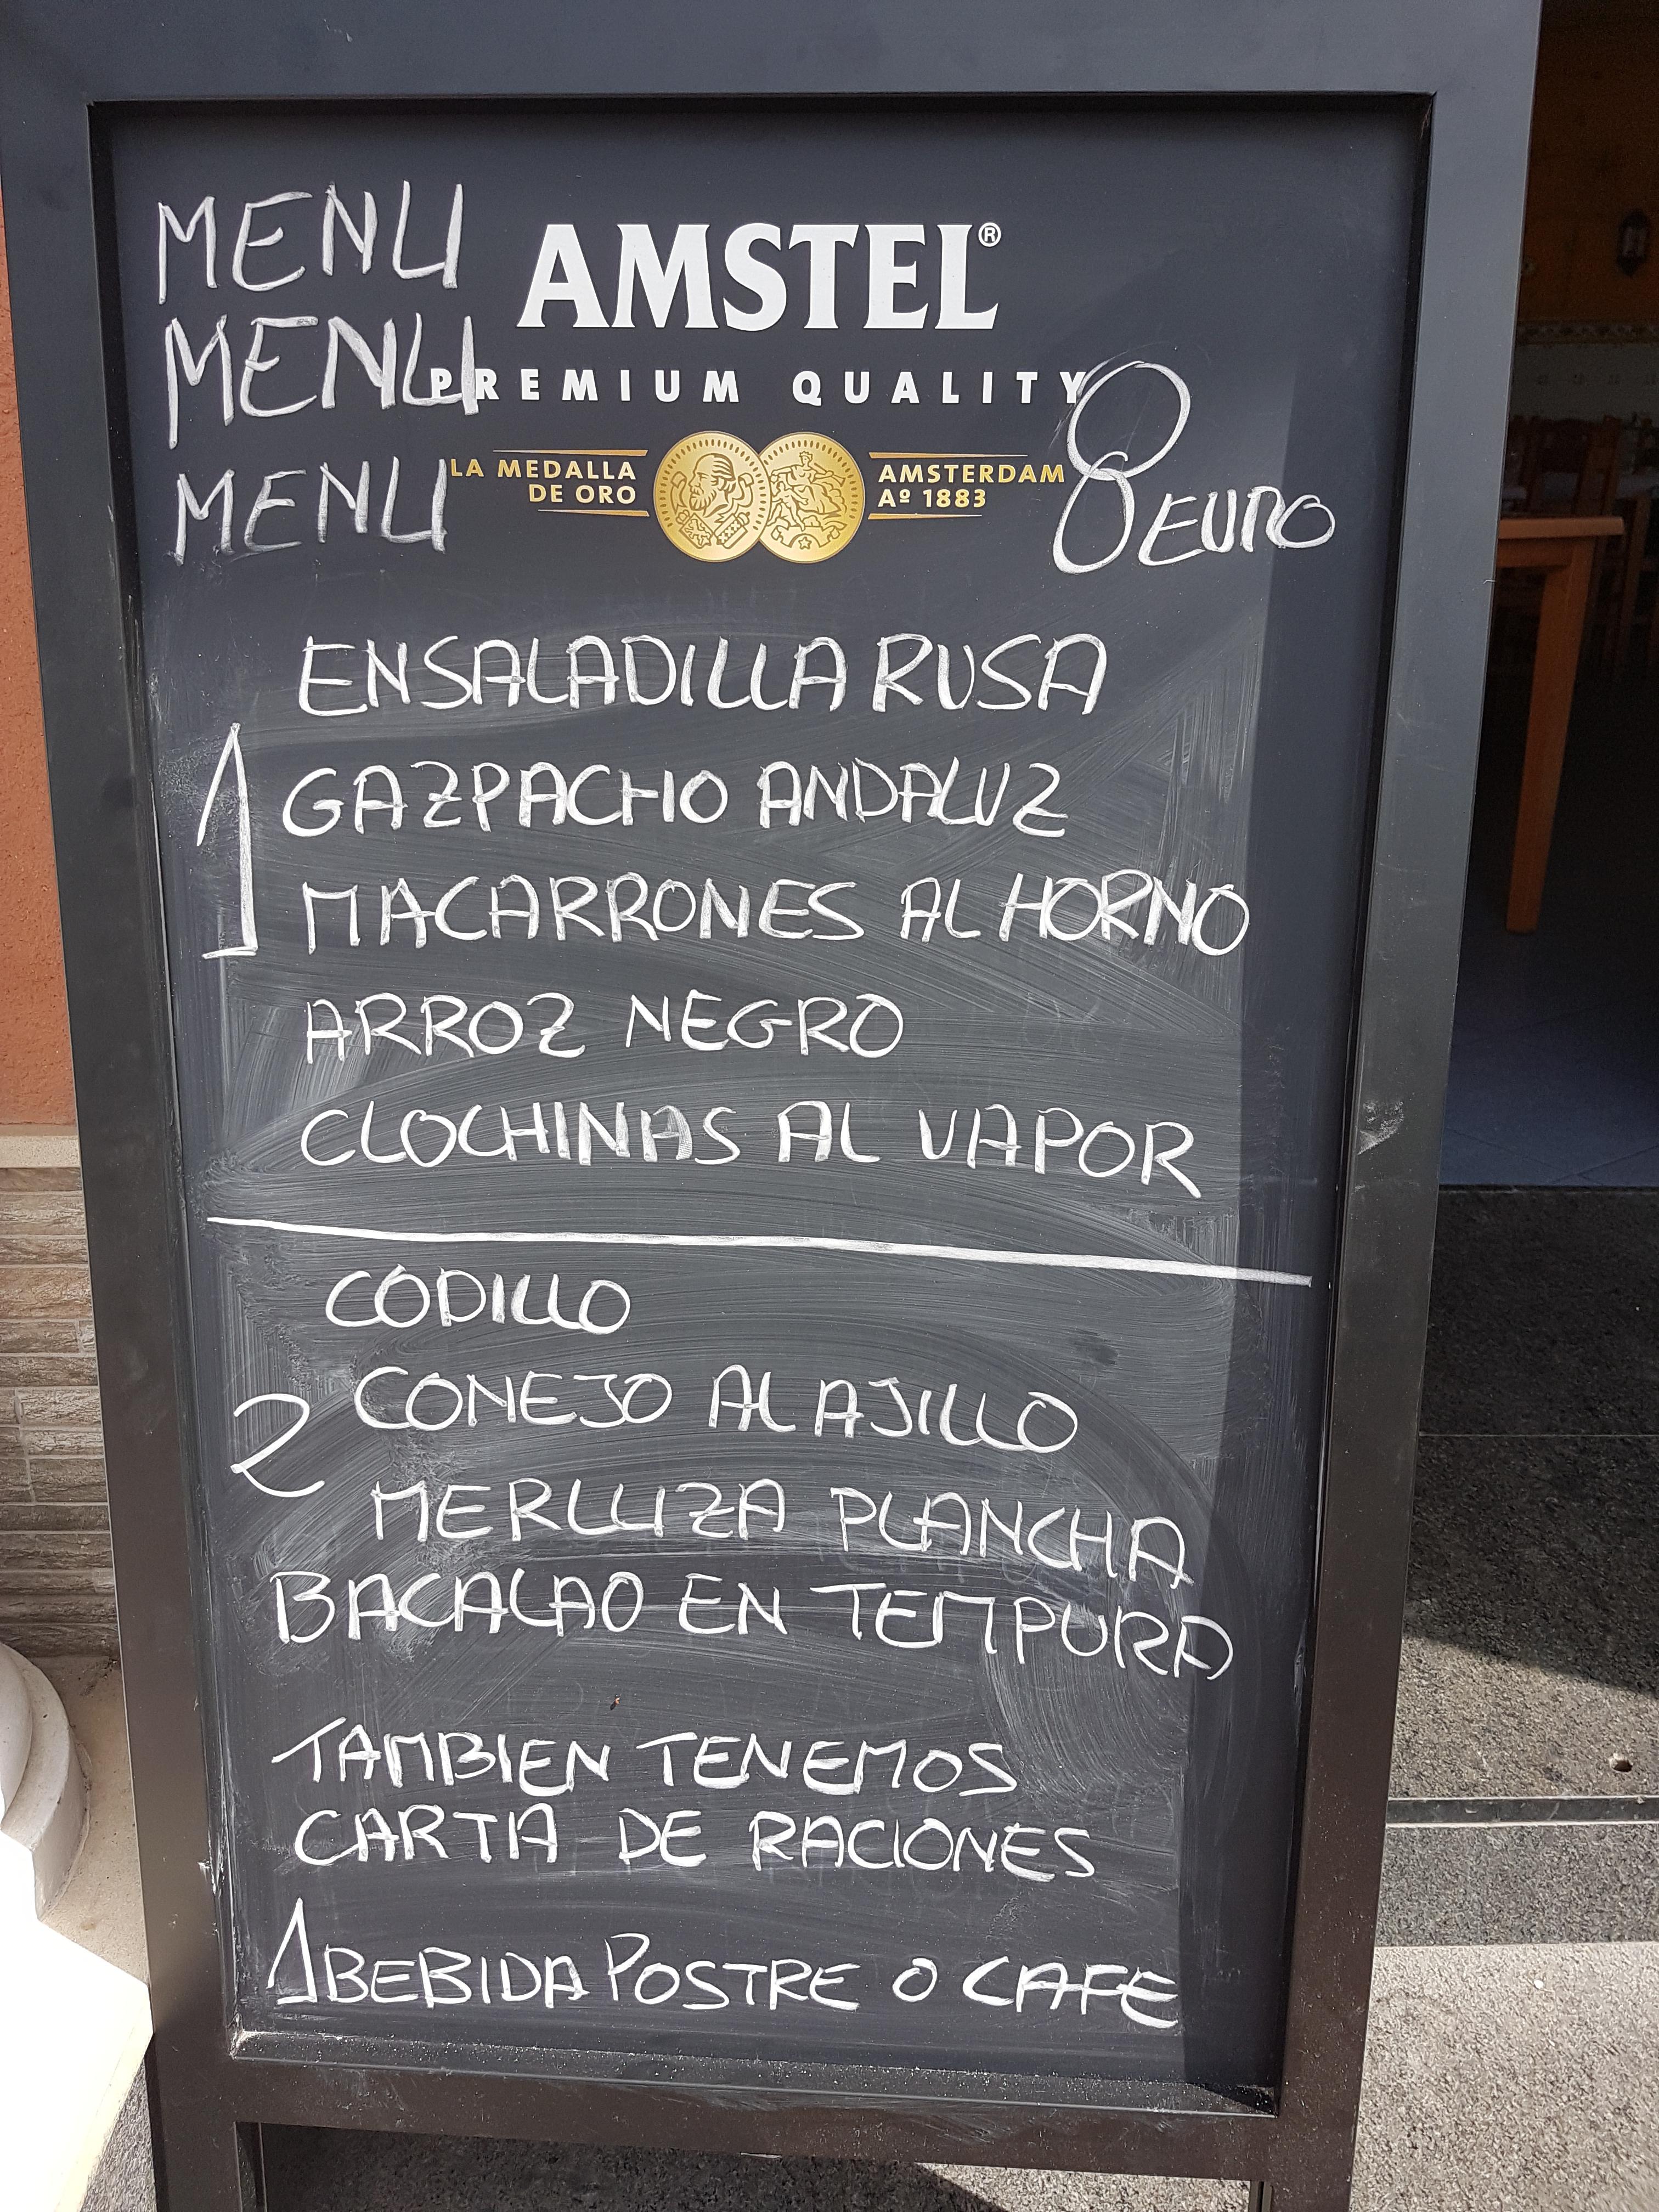 MENU
AMSTEL®
MENU
PREMIUM QUALITY
MENU
LA MEDALLA
DE ORO
AMSTERDAM
Aº 1883
8 EURO
ENSALADILLA RUSA
1 GAZPACHO ANDALUZ
MACARRONES AL HORNO
ARROZ NEGRO
CLOCHINAS AL VAPOR
CODILLO
2 CONEJO AL AJILLO
MERLUZA PLANCHA
BACALAO EN TEMPURA
TAMBIEN TENEMOS
CARTA DE RACIONES
1 BEBIDA POSTRE O CAFE